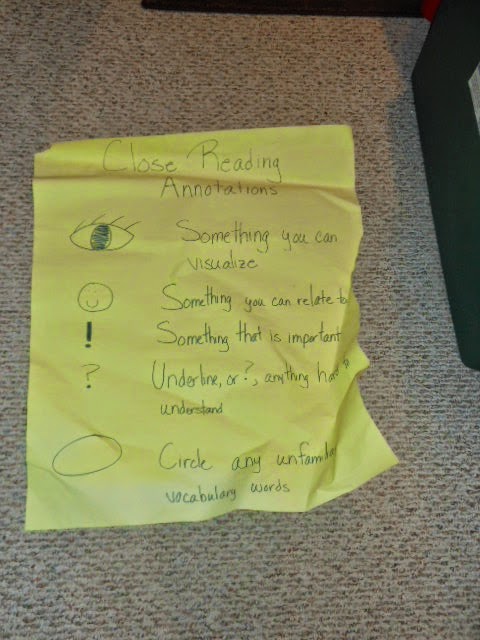 Close Reading
Annotations
Something you can
visualize
Something you can relate to
! Something that is important
? Underline, or ?, anything hard to
understand
Circle any unfamiliar
vocabulary words